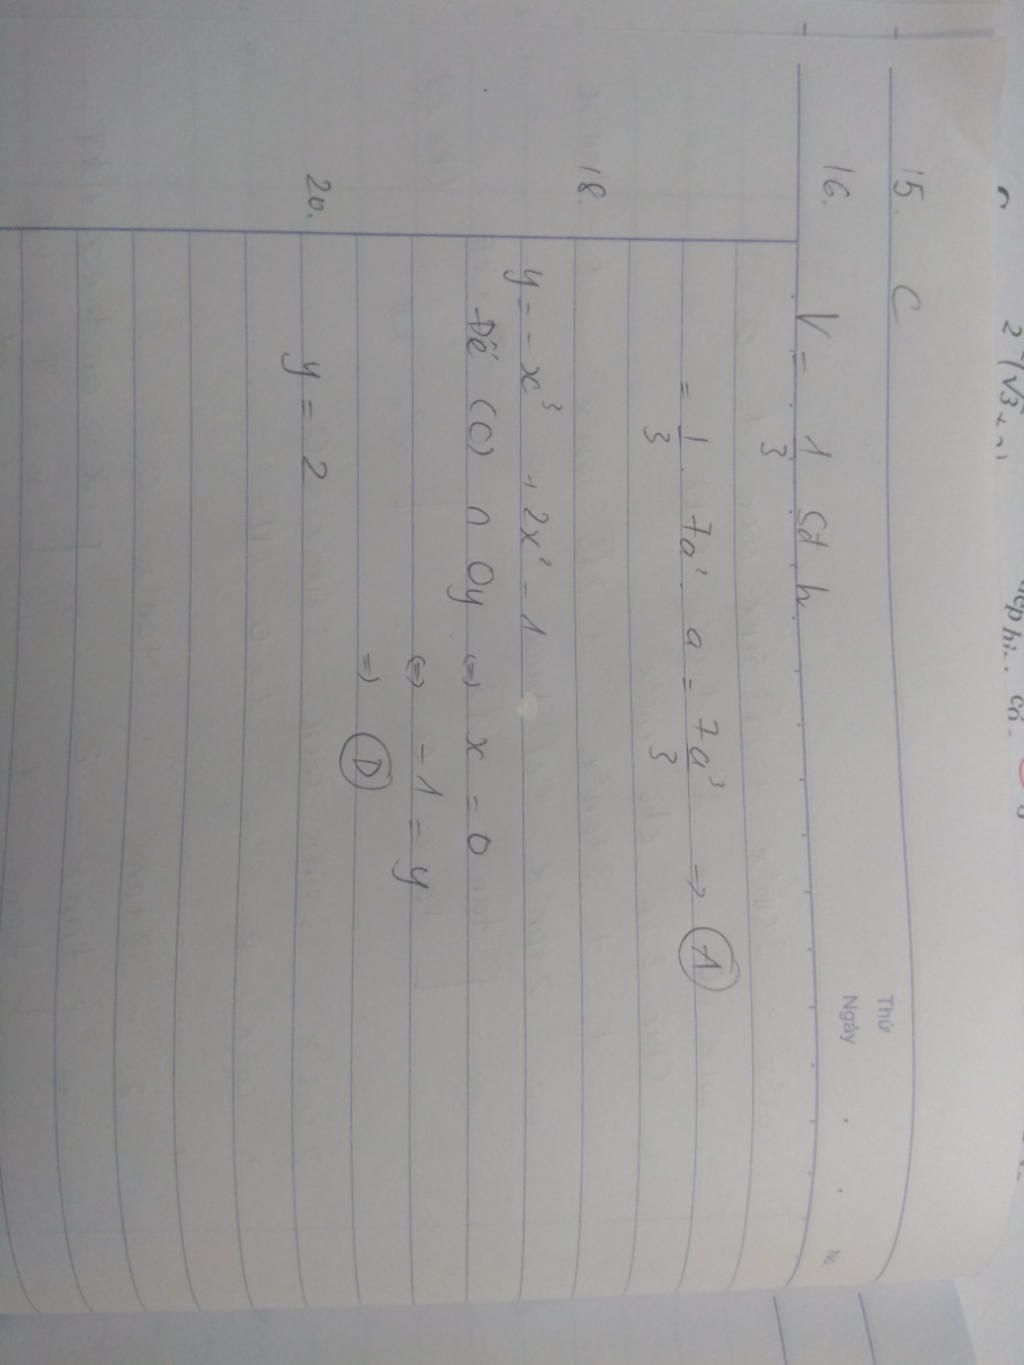 Thứ
Ngày
No.
15. C
16. V = 1/3 Sđ h
= 1/3 . 7a² . a = 7a³/3 → A
18.
y = -x³ + 2x² - 1
Để (C) ∩ Oy ⇔ x = 0
⇔ -1 = y
⇒ D
20. y = 2